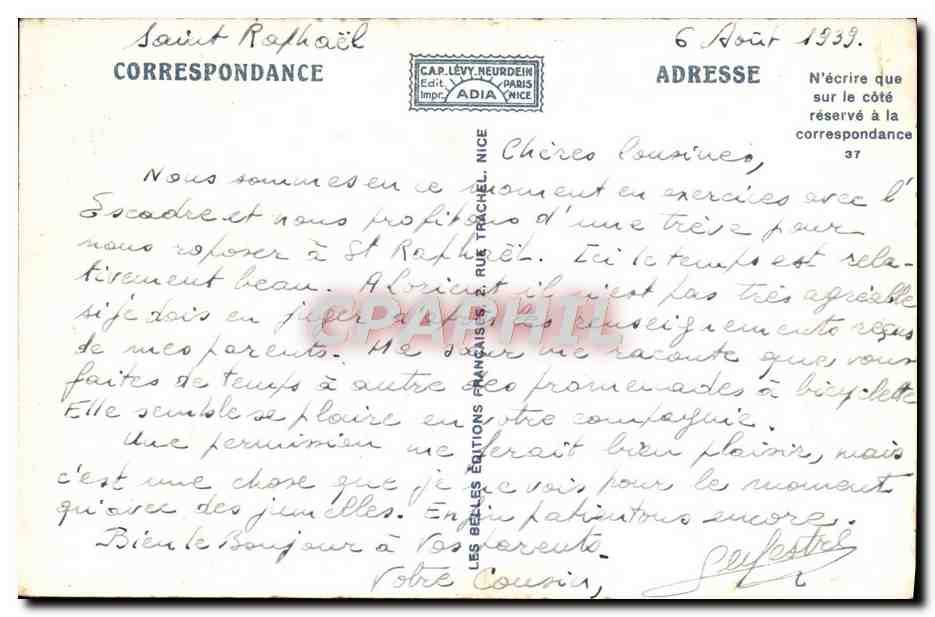 Saint Raphaël
6 Août 1939.
CORRESPONDANCE
C.A.P. LÉVY. NEURDEIN
Edit. PARIS
Impr. ADIA NICE
ADRESSE
N'écrire que
sur le côté
réservé à la
correspondance
37
LES BELLES ÉDITIONS FRANÇAISES, 2, RUE TRACHEL. NICE
Chères Cousines,
Nous sommes en ce moment en exercices avec l'
Escadre et nous profitons d'une trève pour
nous roposer à St Raphaël. Ici le temps est rela-
tivement beau. A Lorient il n'est pas très agréable
si je dois en juger d'après les renseignements reçus
de mes parents. Ma sœur me raconte que vous
faites de temps à autre des promenades à bicyclette
Elle semble se plaire en votre compagnie.
Une permission me ferait bien plaisir, mais
c'est une chose que je ne vois pour le moment
qu'avec des jumelles. Enfin patientons encore.
Bien le Bonjour à Vos parents.
Votre Cousin,
CPAPHIL